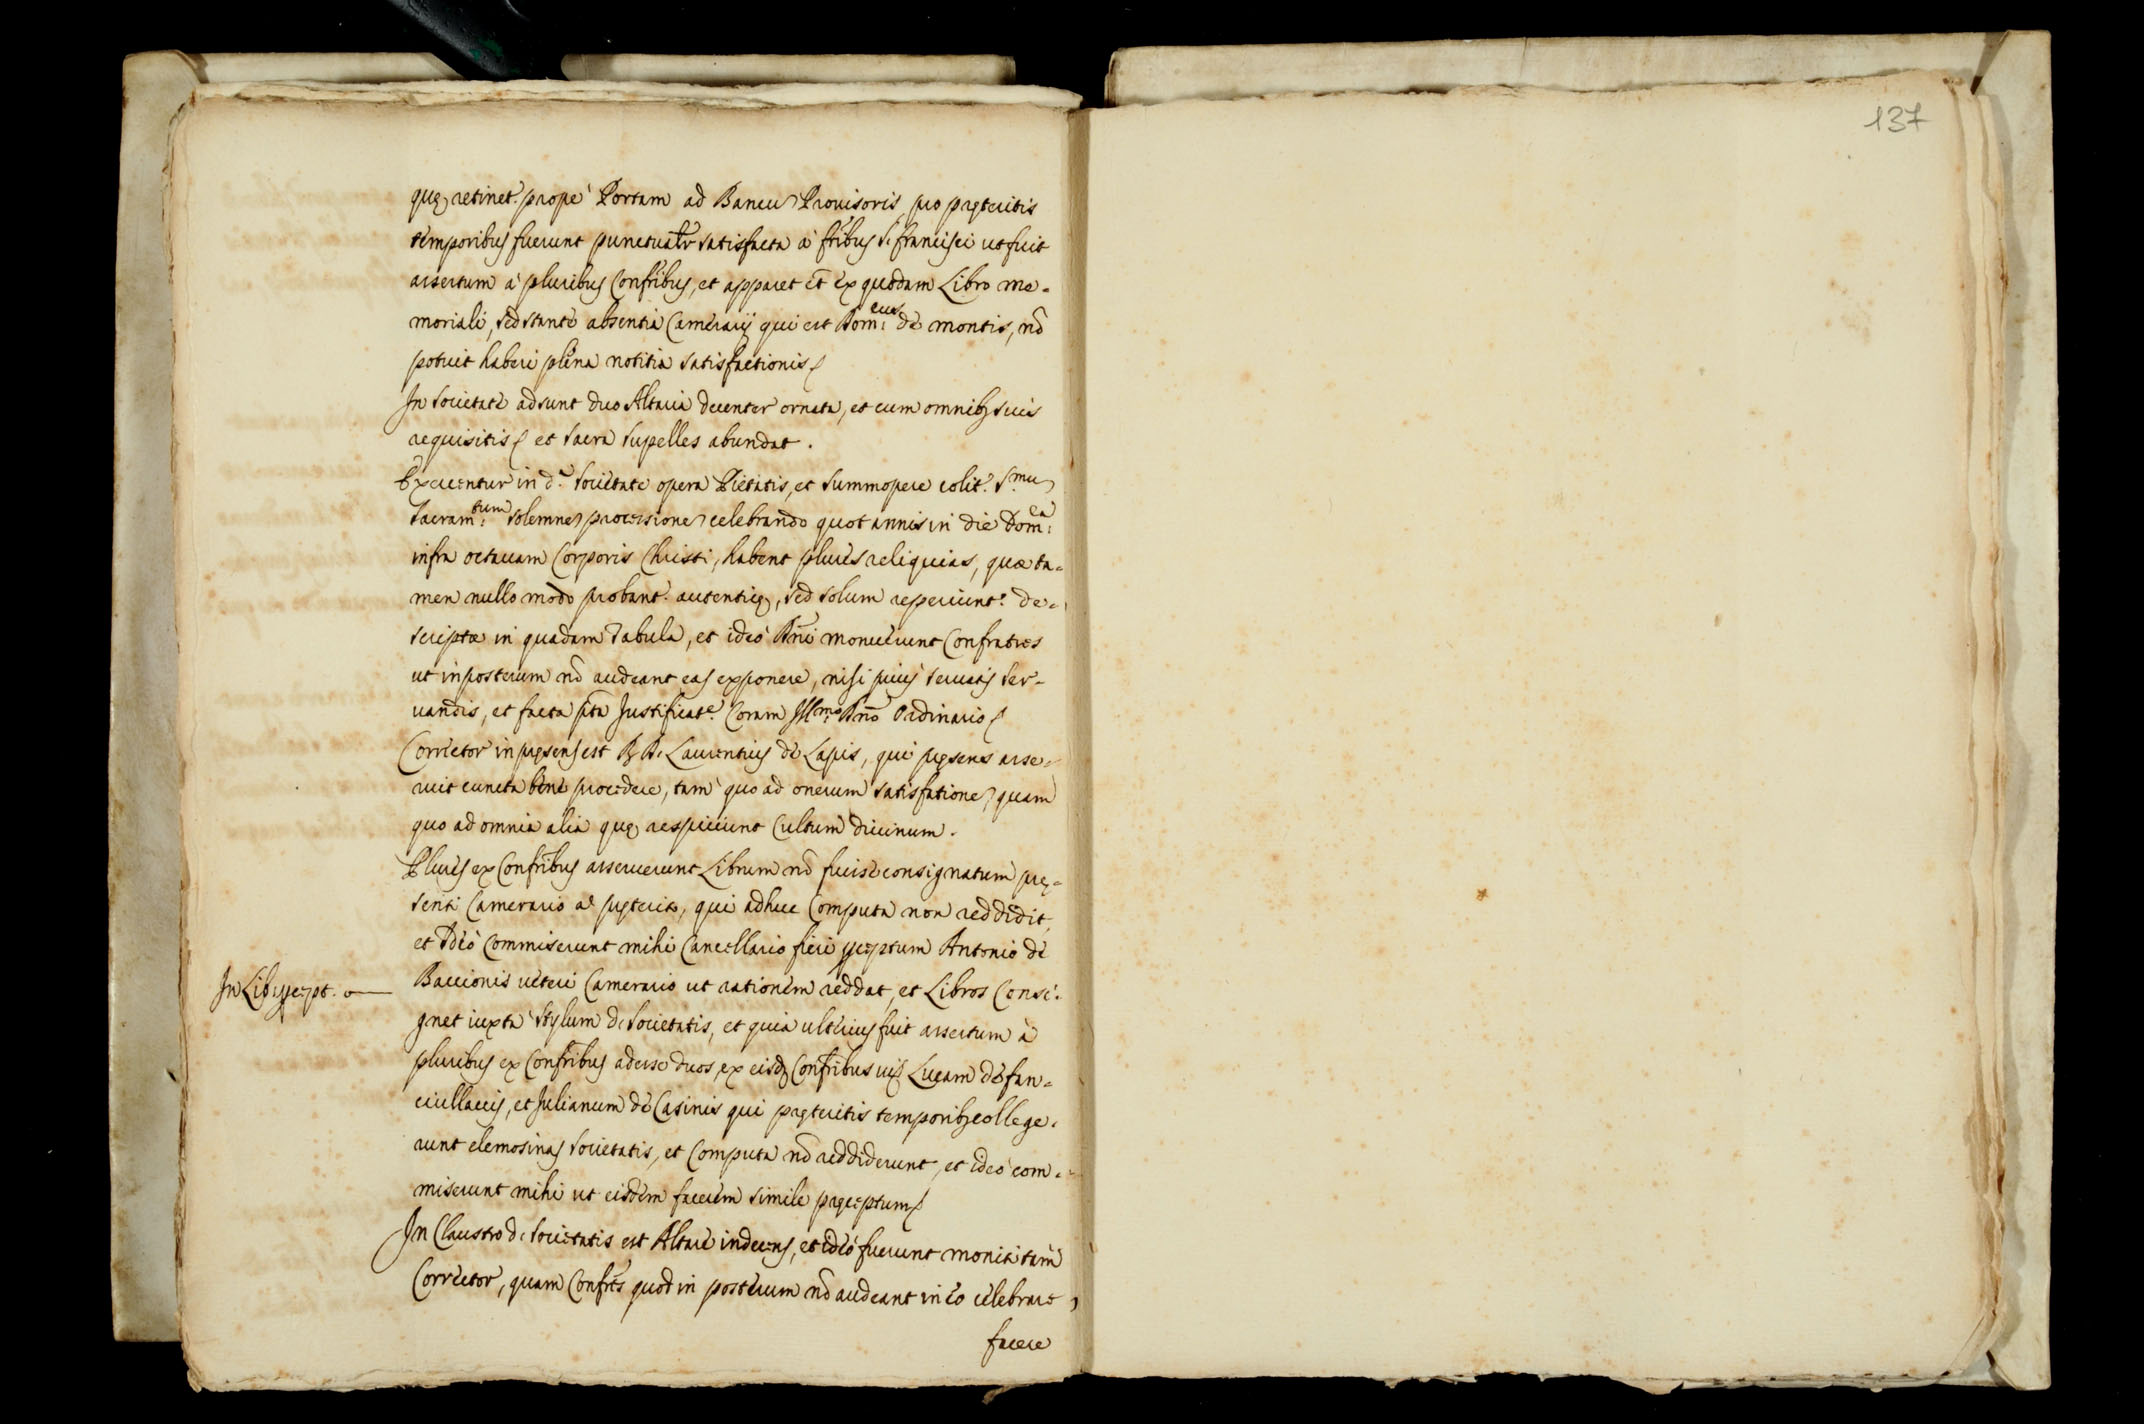 137
quę retinet.ʳ propè Portam ad Bancū Prouisoris, pro pręteritis
temporibus fuerunt punctualr̄ satisfacta à fribus S. francisci ut fuit
assertum à pluribus Confribus, et apparet et̄ ex quodam Libro me-
moriali, sed stante absentia Camerarij qui est Dom:ᶜᵘˢ de montis, nō
potuit haberi plena notitia satisfactionis
In societate adsunt duo Altaria decenter ornata, et cum omnibȝ suis
requisitis et sacra supelles abundat.
Exercentur in d.ᵃ societate opera Pietatis, et summopere colit.ʳ S.ᵐᵘ
Sacram:ᵗᵘᵐ solemne processione celebrando quot annis in die Dom:ᶜᵃ
infra octauam Corporis Christi, habent plures reliquias, quæ ta-
men nullo modo probant.ʳ autenticę, sed solum reperiunt.ʳ de-
scriptæ in quadam Tabula, et ideò Dn̄i monuerunt Confratres
ut inposterum nō audeant eas exponere, nisi prius seruatis ser-
uandis, et facta pt̄a Justificat.ᵉ Coram Jll:ᵐᵒ Dn̄o Ordinario
Corrector in pręsens est R. D. Laurentius de Lapis, qui pręsens asse-
ruit cuncta bene procedere, tam quo ad onerum satisfatione, quam
quo ad omnia alia quę respiciunt Cultum diuinum.
Plures ex Confribus asseruerunt Librum nō fuisse consignatum prę-
senti Camerario a pręterito, qui adhuc Computa non reddidit,
et Ideò Commiserunt mihi Cancellario fieri pręceptum Antonio de
In Lib. pręcept.
Baccionis ueteri Camerario ut rationem reddat, et Libros Consi-
gnet iuxta stylum d. Societatis, et quia ulterius fuit assertum à
pluribus ex Confribus adesse duos, ex eisdȝ Confribus uiȝ Lucam de fan-
ciullaccis, et Julianum de Casinis qui pręteritis temporibȝ college-
runt elemosinas societatis, et Computa nō reddiderunt, et ideò com-
miserunt mihi ut eisdem facerem simile pręceptum
In Claustro d. Societatis est Altare indecens, et ideò fuerunt moniti tam
Corrector, quam Confres quod in posterum nō audeant in eo celebrare
facere